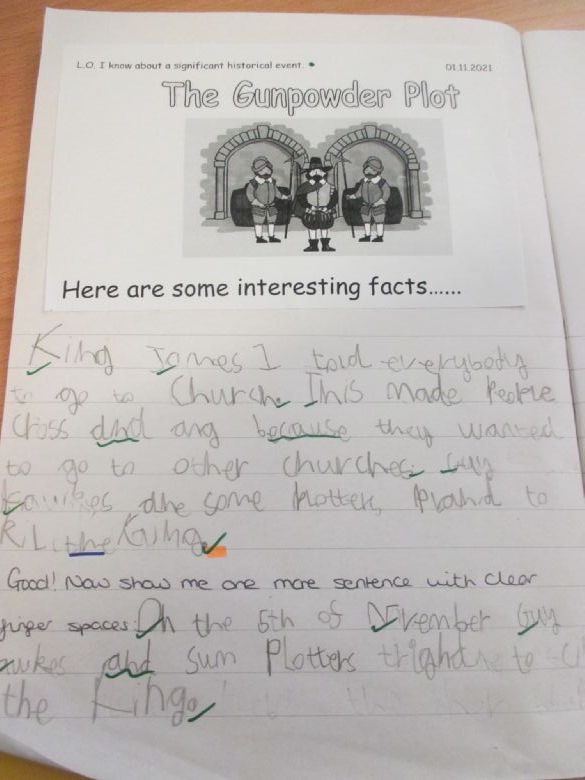 L.O. I know about a significant historical event.
01.11.2021
The Gunpowder Plot
Here are some interesting facts......
King James I told everybody
to go to Church. This made People
cross and ang because they wanted
to go to other churches. Guy
Fawkes and some Plotters Pland to
the King.
Good! Now show me one more sentence with clear
finger spaces.
On the 5th of November Guy
and sum Plotters to
the King.